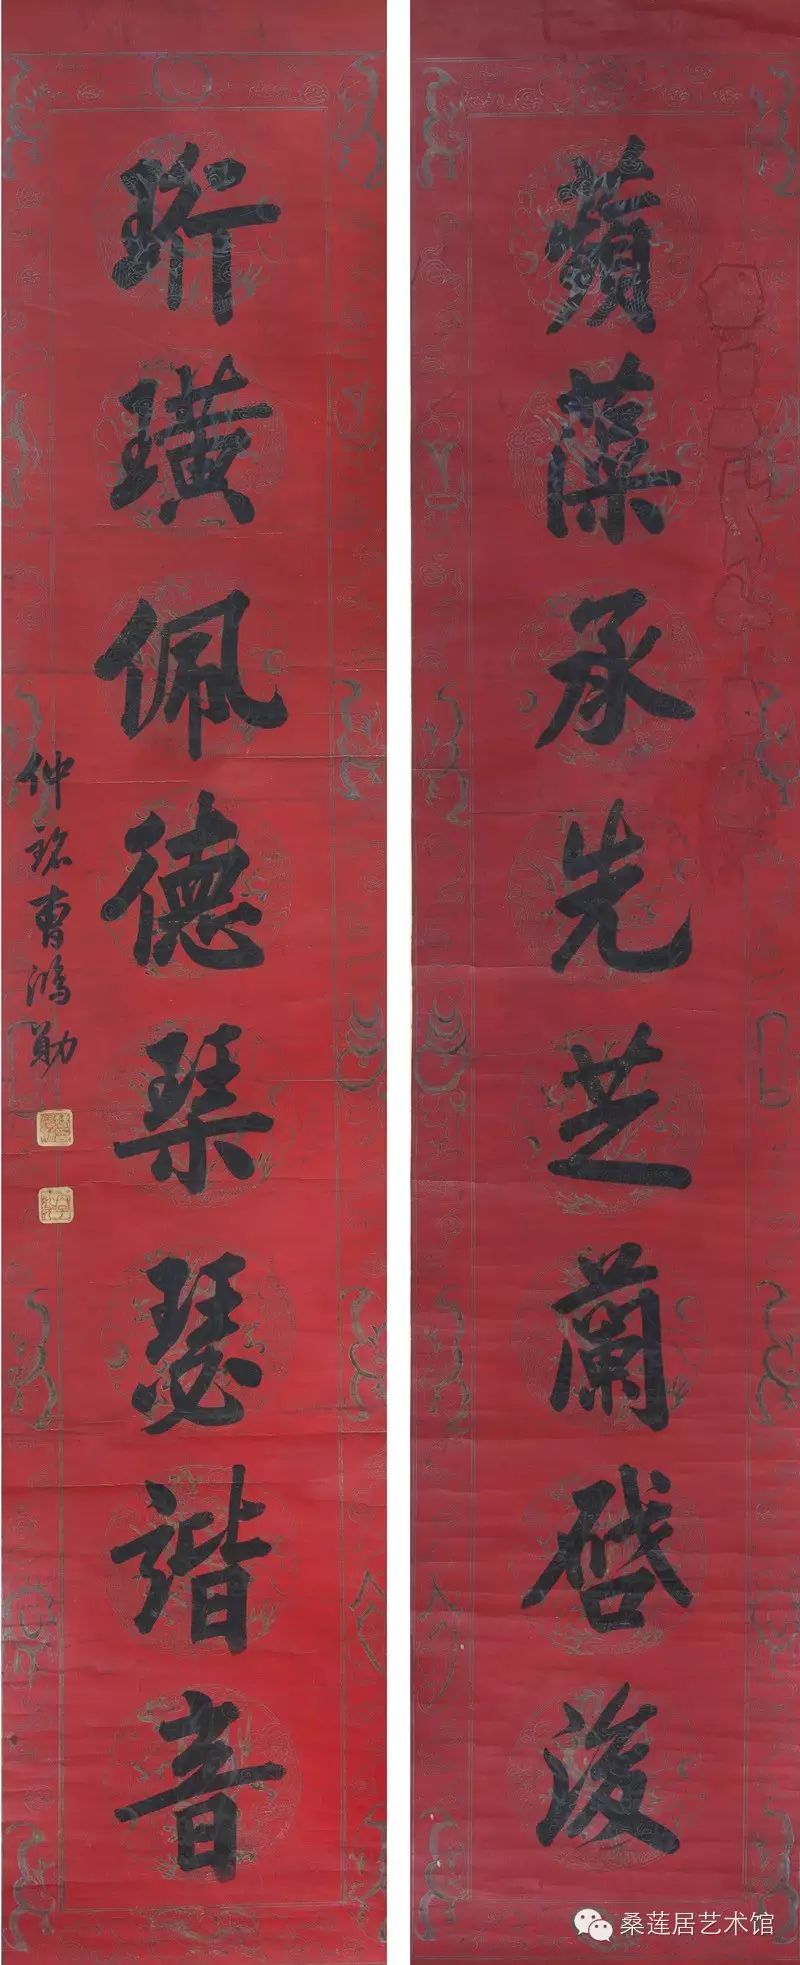 蘋藻承先芝蘭啓後
珩璜佩德琹瑟諧音
仲銘曹鴻勛
桑莲居艺术馆